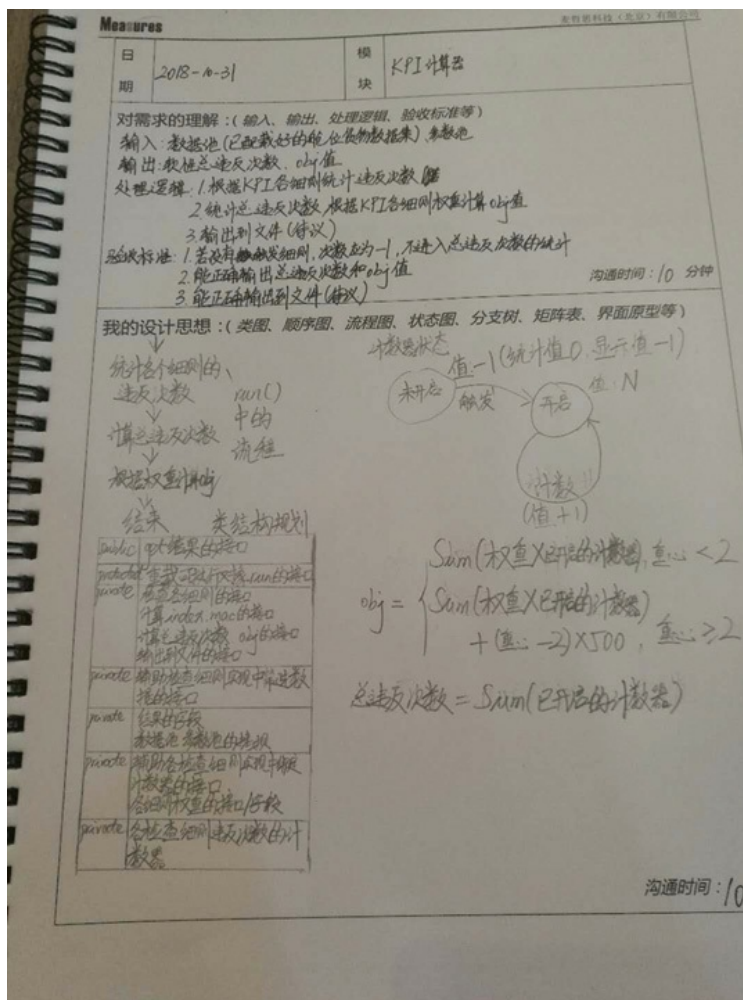 Measures
麦哲思科技（北京）有限公司
日期
2018-10-31
模块
KPI计算器
对需求的理解：（输入、输出、处理逻辑、验收标准等）
输入：数据池(已配载好的舱位货物数据集)、参数池
输出：软性总违反次数、obj值
处理逻辑：1.根据KPI各细则统计违反次数
2.统计总违反次数，根据KPI各细则权重计算obj值
3.输出到文件(待议)
验收标准：1.若没有触发细则，次数应为-1，不进入总违反次数的统计
2.能正确输出总违反次数和obj值
3.能正确输出到文件(待议)
沟通时间：10 分钟
我的设计思想：（类图、顺序图、流程图、状态图、分支树、矩阵表、界面原型等）
统计各个细则的、
违反次数
run()
中的
流程
计算总违反次数
根据权重计算obj
结束
计数器状态
未开启
值-1(统计值0,显示值-1)
触发
开启
值:N
计数
(值+1)
类结构规划
public
结果的接口
protected
run的接口
private
检查各细则的接口
计算index.mac的接口
计算总违反次数 obj的接口
输出到文件的接口
private
辅助检查细则实现中
数据的接口
private
结果的字段
数据池 参数池的
private
辅助各检查细则实现中
计数器的接口
各细则权重的接口/字段
private
各检查细则违反次数的计
数器
obj=
Sum(权重×已开启的计数器),重心<2
Sum(权重×已开启的计数器)
+(重心-2)×500，重心≥2
总违反次数=Sum(已开启的计数器)
沟通时间：10